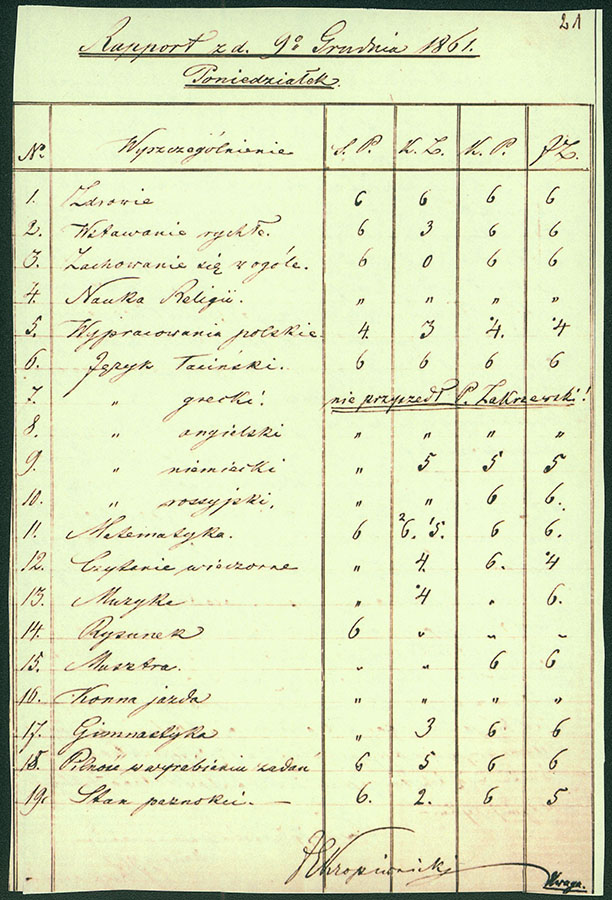 21
Rapport z d. 9º Grudnia 1861.
Poniedziałek.
Nº Wyszczególnienie S. P. K. Z. K. P. J Z.
1. Zdrowie 6 6 6 6
2. Wstawanie rychłe. 6 3 6 6
3. Zachowanie się w ogóle. 6 0 6 6
4. Nauka Religii. " " " "
5. Wypracowania polskie. 4. 3 *4. *4
6. Język łaciński. 6 6 6 6
7. " grecki. nie przyszedł P. Zakrzewski!
8. " angielski " " " "
9. " niemiecki " 5 5 5
10. " rossyjski, " " 6 6.
11. Matematyka. 6 ²6. ¹5. 6 6.
12. Czytanie wieczorne " 4. 6. *4
13. Muzyka " *4 " 6.
14. Rysunek 6 " " "
15. Musztra. " " 6 6
16. Konna jazda " " " "
17. Gimnastyka " 3 6 6
18. Pilność w wyrabianiu zadań 6 5 6 6
19. Stan paznokci. — 6. 2. 6 5
Kropiwnicki
Uwaga.